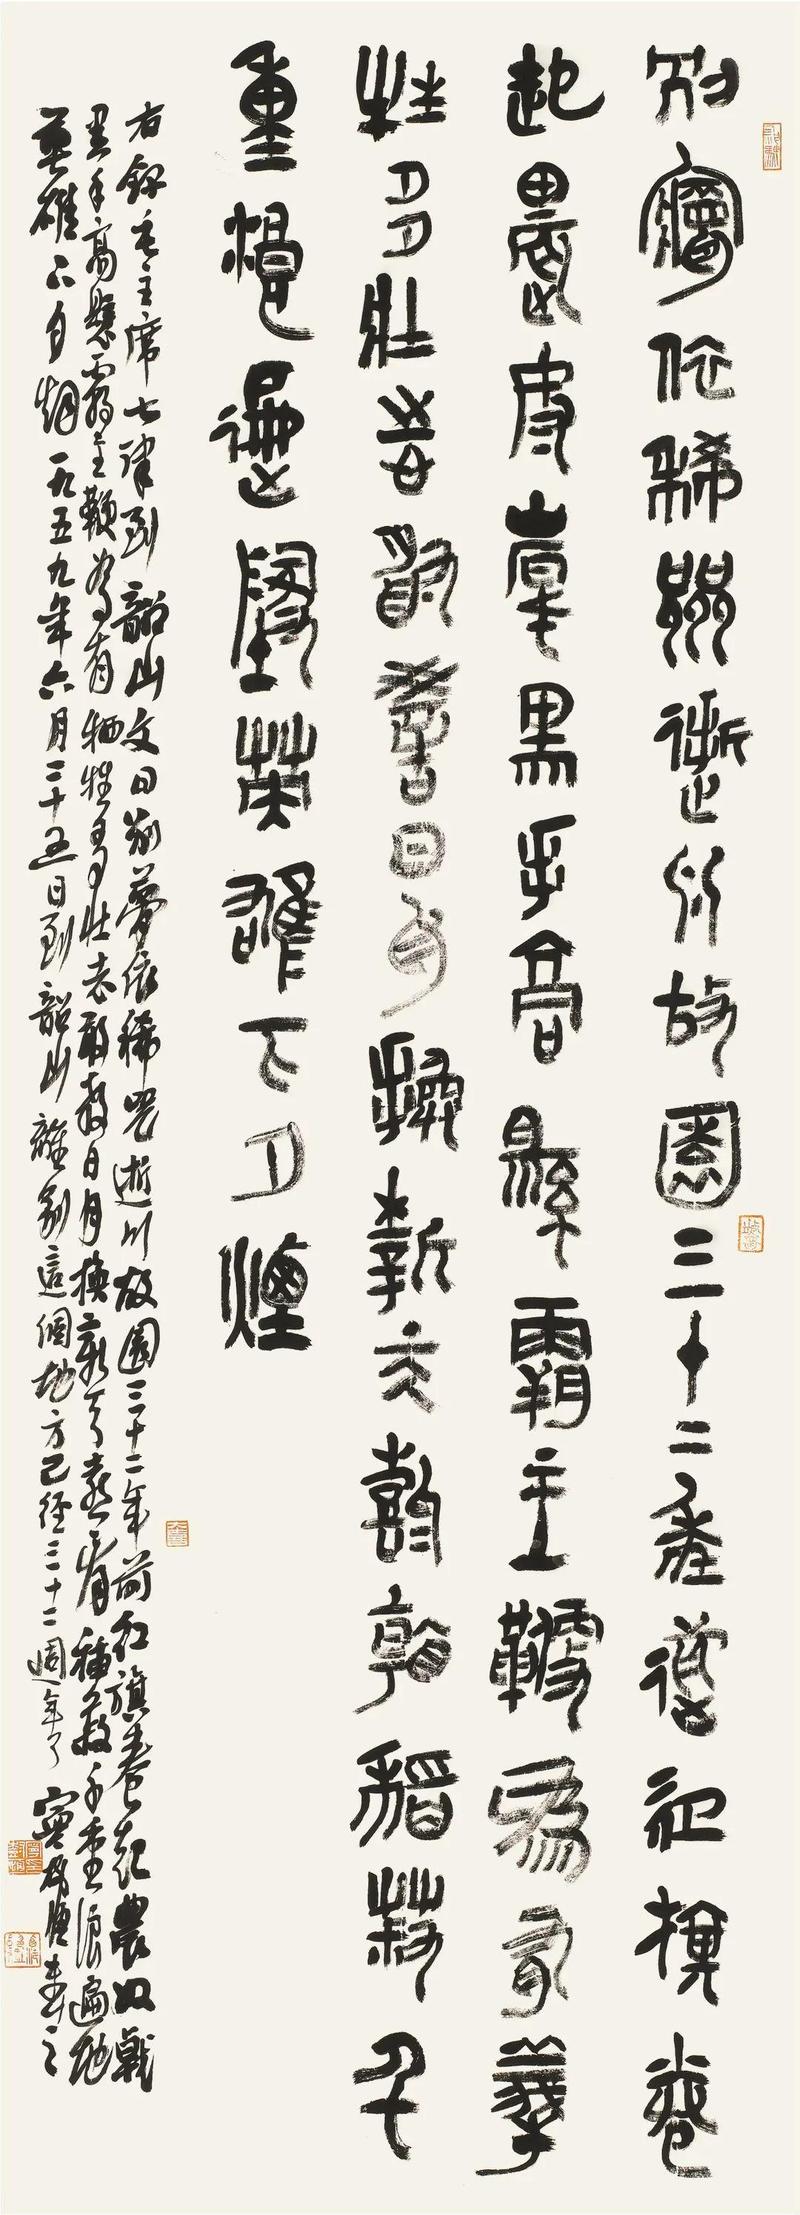 別夢依稀咒逝川故園三十二年前紅旗卷
起農奴戟黑手高懸霸主鞭為有犧
牲多壯志敢教日月換新天喜看稻菽千
重浪遍地英雄下夕煙
右錄毛主席七律到韶山文曰別夢依稀咒逝川故園三十二年前紅旗卷起農奴戟
黑手高懸霸主鞭為有犧牲多壯志敢教日月換新天喜看稻菽千重浪遍地
英雄下夕烟一九五九年六月二十五日到韶山離別這個地方已經三十二週年了 書之